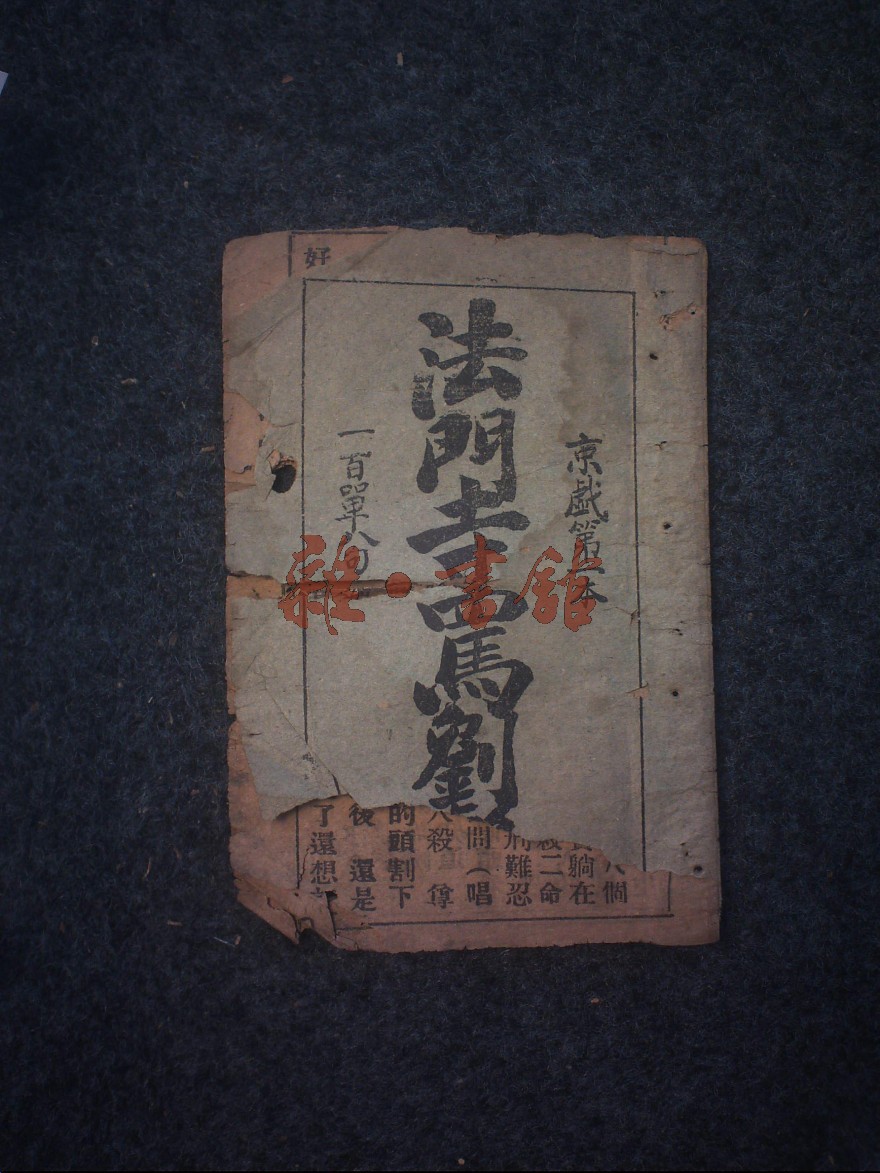 好
京戱第
法門寺罵劉
一百單八句
雜·書館
個
躺在
二命
刑難忍
問（唱
殺 尊
的頭割下
後 還是
了還想